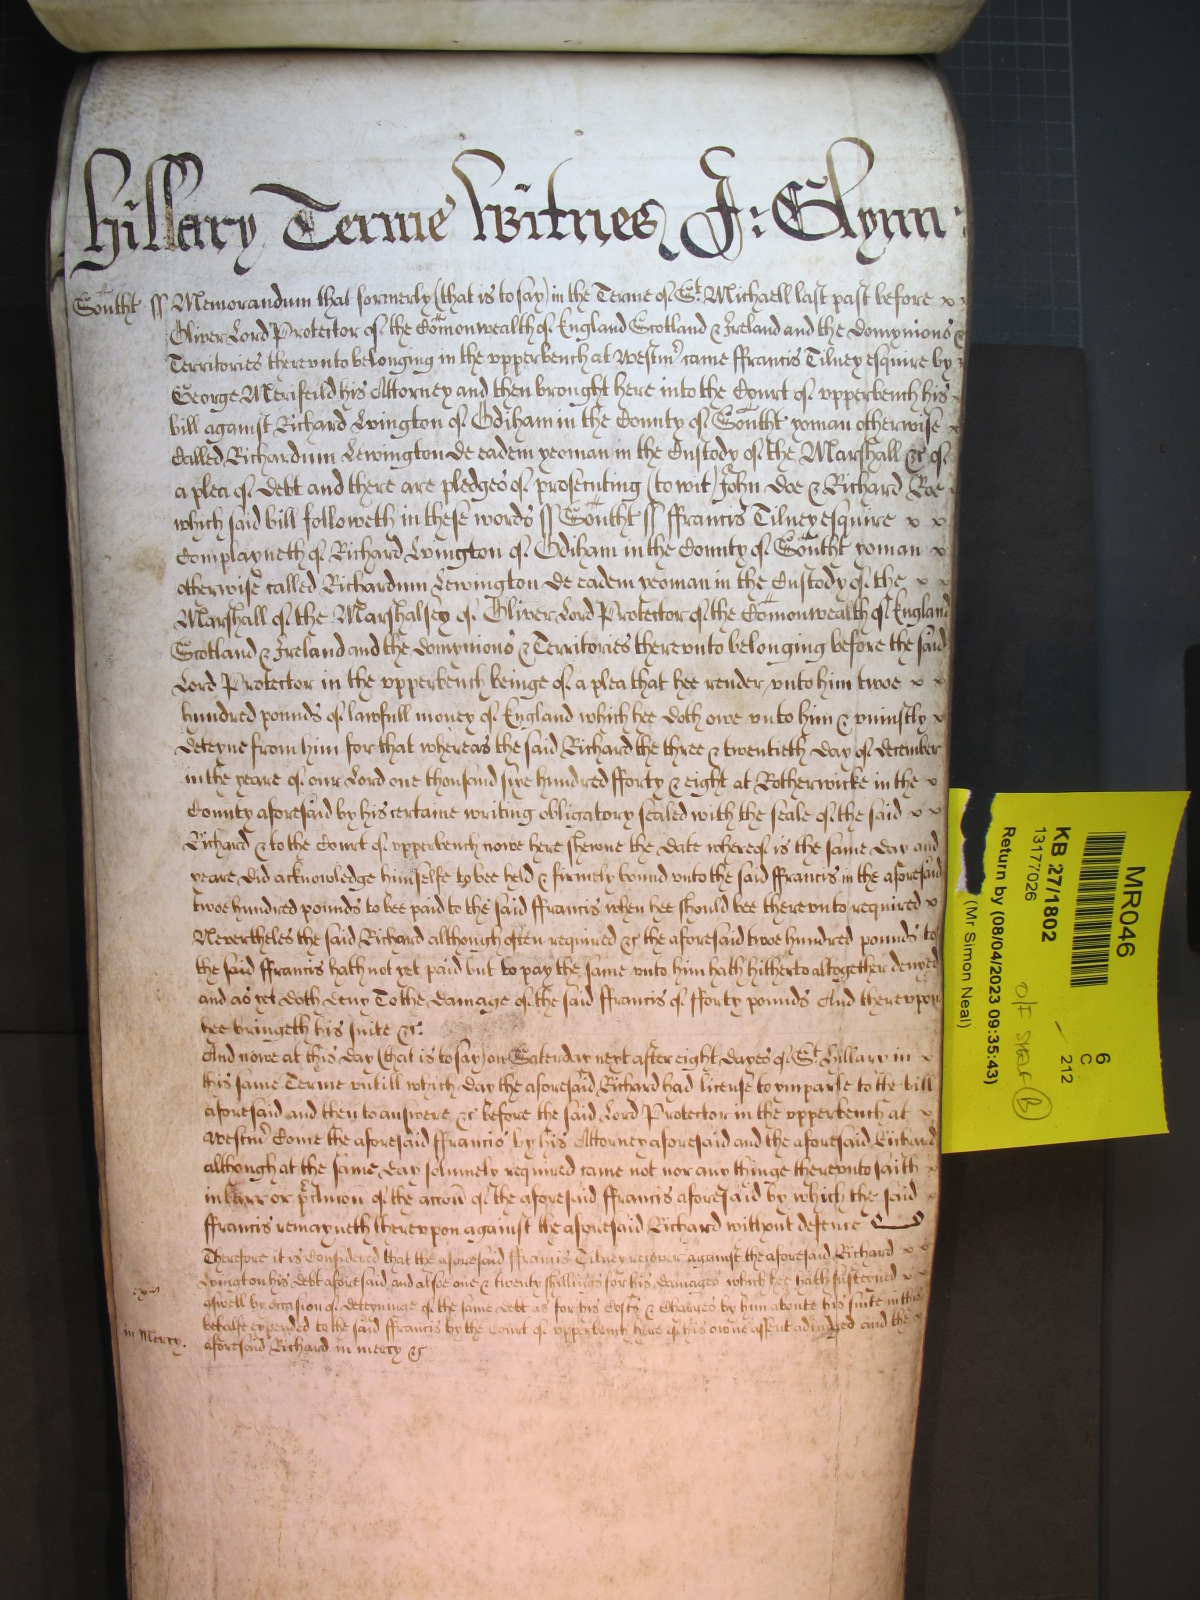 Hillary Terme Witnes J: Glynn
Southt ss Memorandum that formerly (that is to say) in the Terme of St Michaell last past before x x
Oliver Lord Protector of the Comonwealth of England Scotland & Ireland and the domynions &
Territories therevnto belonging in the vpperbench at Westmr came ffrancis Tilney esquire by x
George Merifeild his Attorney and then brought here into the Court of vpperbench his x
bill against Richard Lvington of Odiham in the County of Southt yoman otherwise x
Called Richardum Lewington de eadem yeoman in the Custody of the Marshall &c of
a plea of debt and there are pledges of prosecuting (to wit) John Doe & Richard Roe
which said bill followeth in these words ss Southt ss ffrancis Tilney esquire x x
Complayneth of Richard Lvington of Odiham in the County of Southt yoman x
otherwise called Richardum Lewington de eadem yeoman in the Custody of the x x
Marshall of the Marshalsey of Oliver Lord Protector of the Comonwealth of England
Scotland & Ireland and the domynions & Territories therevnto belonging before the said
Lord Protector in the vpperbench beinge of a plea that hee render vnto him twoe x x
hundred pounds of lawfull money of England which hee doth owe vnto him & vniustly x
deteyne from him for that whereas the said Richard the three & twentieth day of december
in the yeare of our Lord one thousand sixe hundred fforty & eight at Rotherwicke in the x
County aforesaid by his certaine writing obligatory sealed with the seale of the said x x
Richard & to the Court of vpperbench nowe here shewne the date whereof is the same day and
yeare did acknowledge himselfe to bee held & firmely bound vnto the said ffrancis in the aforesaid
twoe hundred pounds to bee paid to the said ffrancis when hee should bee therevnto required x
Nevertheles the said Richard although often required &c the aforesaid twoe hundred pounds to
the said ffrancis hath not yet paid but to pay the same vnto him hath hitherto altogether denyed
and as yet doth deny To the damage of the said ffrancis of fforty pounds And therevpon
hee bringeth his suite &c.
And nowe at this day (that is to say) on Saterday next after eight dayes of St Hillary in x
this same Terme vntill which day the aforesaid Richard had license to imparle to the bill
aforesaid and then to answere &c before the said Lord Protector in the vpperbench at x
Westmr Come the aforesaid ffrancis by his Attorney aforesaid and the aforesaid Richard
although at the same day solemnely required came not nor any thinge therevnto saith x
in barr or pclusion of the accon of the aforesaid ffrancis aforesaid by which the said x
ffrancis remayneth therevpon against the aforesaid Richard without defence
Therefore it is Considered that the aforesaid ffrancis Tilney recover against the aforesaid Richard x x
Lvington his debt aforesaid and alsoe one & twenty shillings for his damages which hee hath susteyned x x
aswell by occasion of deteyninge of the same debt as for his Costs & Charges by him aboute his suite in this
behalfe expended to the said ffrancis by the Court of vpperbench here of his owne assent adiudged and the
in Mercy. aforesaid Richard in mercy &c
MR046
6
C
212
KB 27/1802
13177026
O/F SHELF (B)
Return by (08/04/2023 09:35:43)
(Mr Simon Neal)